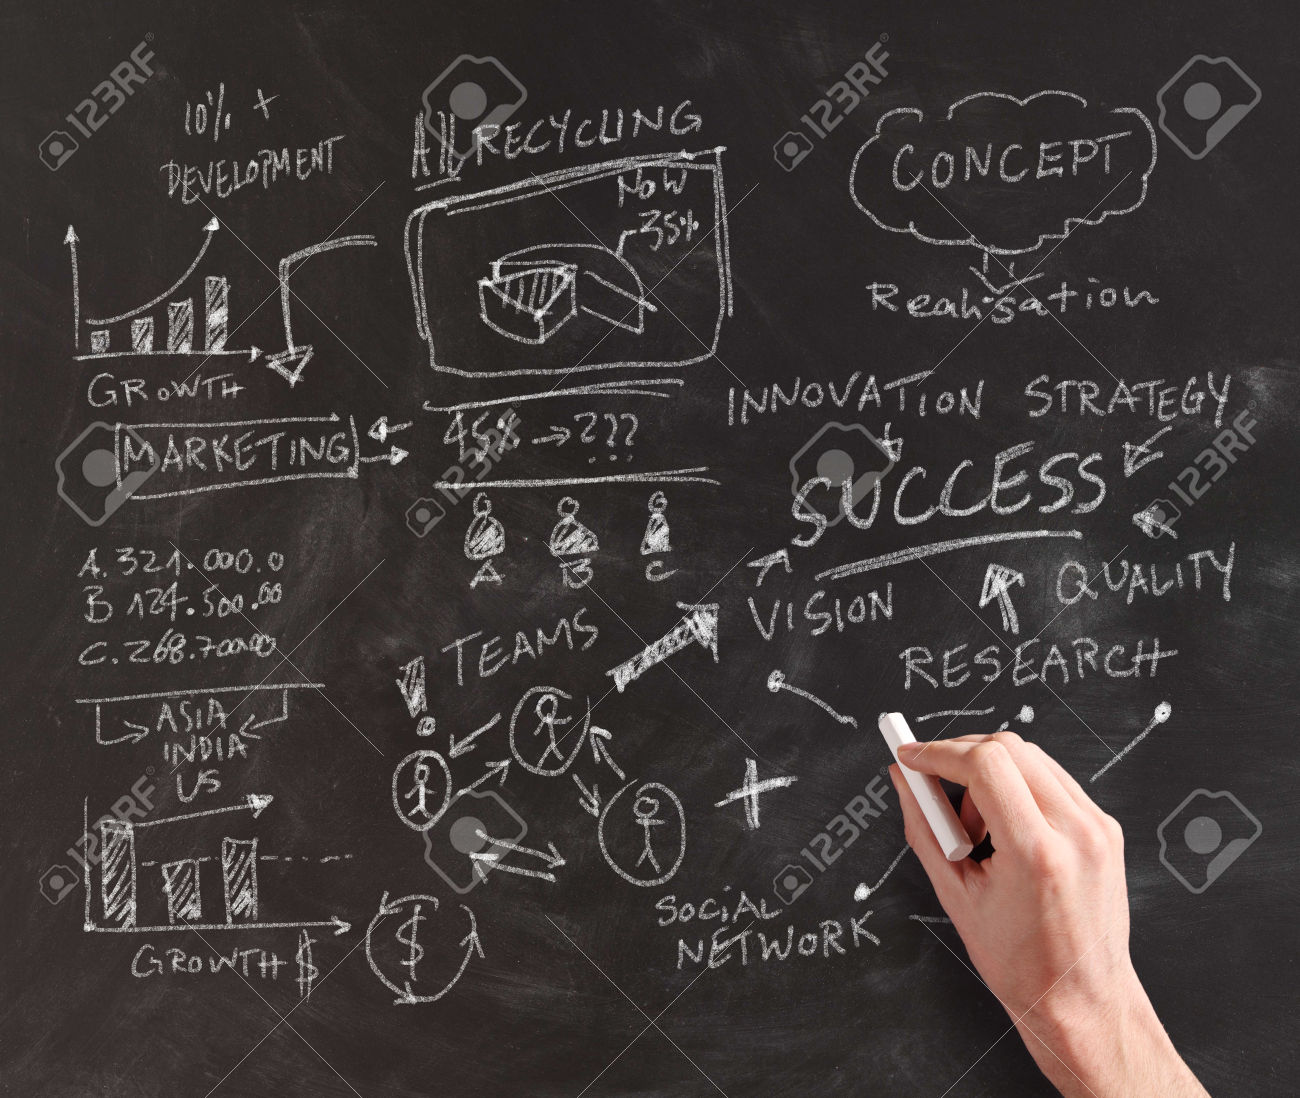 10% +
DEVELOPMENT
GROWTH
MARKETING
A. 321.000.0
B 124.500.00
C. 268.700.00
ASIA
INDIA
US
GROWTH $
$
All RECYCLING
NOW
35%
45% → ???
A B C
TEAMS
!
SOCIAL
NETWORK
+
CONCEPT
Realisation
INNOVATION STRATEGY
SUCCESS
VISION
QUALITY
RESEARCH
123RF
123RF
123RF
123RF
123RF
123RF
123RF